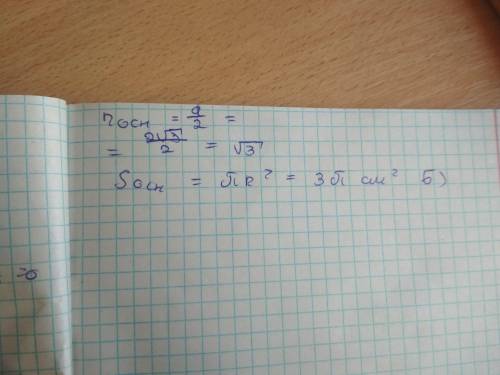 r осн = a/2 =
= 2√3/2 = √3
S осн = πR² = 3π см² Б)